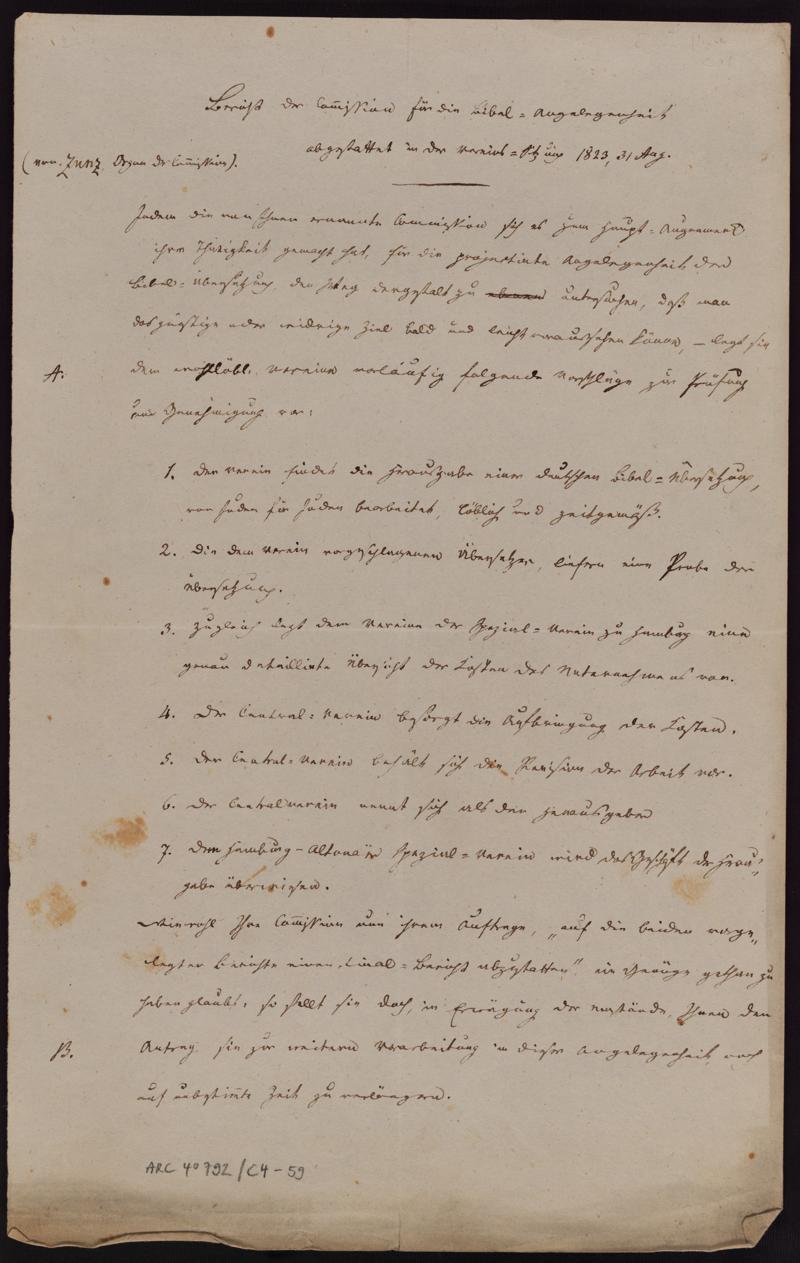 Bericht der Com̄ission für die Bibel-Angelegenheit
abgestattet in der Vereins-Sitzung 1823, 31 Aug.
(von Zunz, Organ der Com̄ission).
Indem die von Ihnen ernannte Commission sich es zum Haupt-Augenmerk
ihrer Thätigkeit gemacht hat, für die projectirte Angelegenheit der
Bibel-Übersetzung, den Weg dergestalt zu ebenen untersuchen, daß man
das günstige oder widrige Ziel bald und leicht voraussehen könne, – legt sie
A. dem wohllöbl. Vereine vorläufig folgende Vorschläge zur Prüfung
und Genehmigung vor:
1. Der Verein findet die Herausgabe einer deutschen Bibel-Übersetzung,
von Juden für Juden bearbeitet, löblich und zeitgemäß.
2. Die dem Verein vorgeschlagenen Übersetzer, liefern eine Probe der
Übersetzung.
3. Zugleich legt dem Vereine der Spezial-Verein zu Hamburg eine
genau detaillirte Übersicht der Kosten des Unternehmens vor.
4. Der Central-Verein besorgt die Aufbringung der Kosten.
5. Der Central-Verein behält sich die Revision der Arbeit vor.
6. Der Centralverein nennt sich als den Herausgeber
7. Dem Hamburg-Altonaer Spezial-Verein wird das Geschäft der Heraus-
gabe überwiesen.
Wiewohl Ihre Com̄ission von ihrem Auftrage, „auf die beiden vorge-
legten Berichte einen Final-Bericht abzustatten" ein Genüge gethan zu
haben glaubt, so stellt sie doch, in Erwägung der Umstände, Ihnen den
B. Antrag sie zur weitern Vorarbeitung in dieser Angelegenheit noch
auf unbestim̄te Zeit zu verlängern.
ARC 4° 792/C4-59